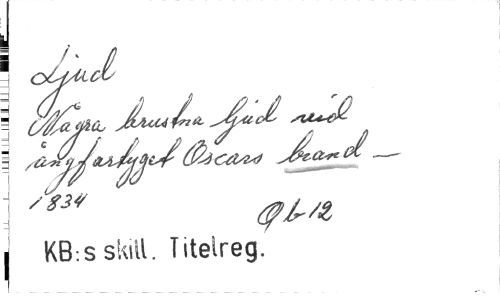 Ljud
Några brustna ljud vid
ångfartyget Oscars brand —
1834
Qb12
KB:s skill. Titelreg.